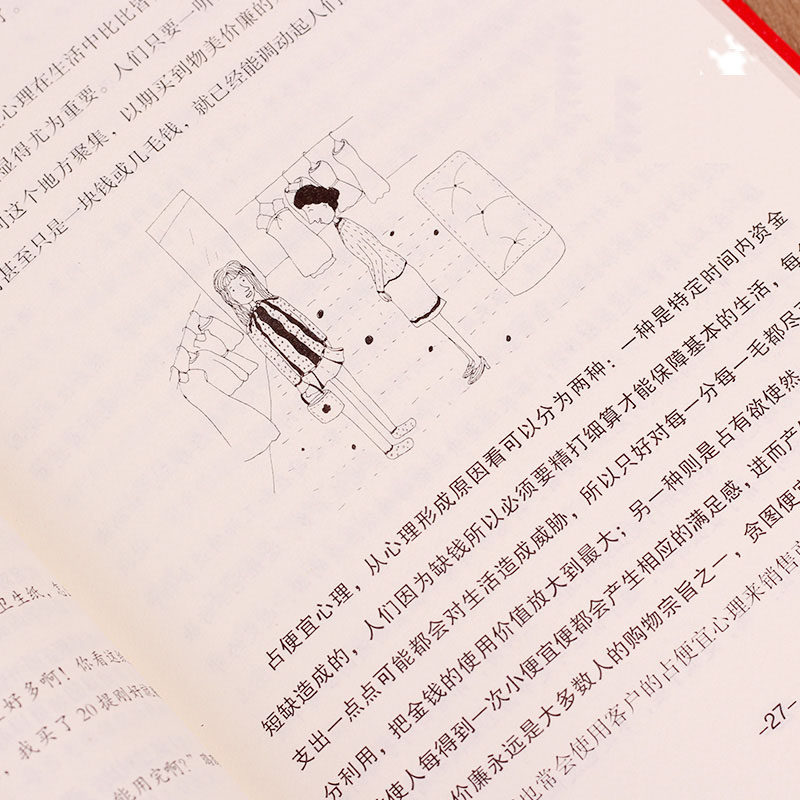 了。
心理在生活中比比皆
显得尤为重要。人们只要一听
到这个地方聚集，以期买到物美价廉的
甚至只是一块钱或几毛钱，就已经能调动起人们
占便宜心理，从心理形成原因看可以分为两种：一种是特定时间内资金
短缺造成的，人们因为缺钱所以必须要精打细算才能保障基本的生活，每
支出一点点可能都会对生活造成威胁，所以只好对每一分每一毛都尽
分利用，把金钱的使用价值放大到最大；另一种则是占有欲使然
使人每得到一次小便宜便都会产生相应的满足感，进而产
价廉永远是大多数人的购物宗旨之一，贪图便宜
也常会使用客户的占便宜心理来销售
-27-
卫生纸，怎
好多啊！你看这
，我买了20提刚好
能用完啊？”